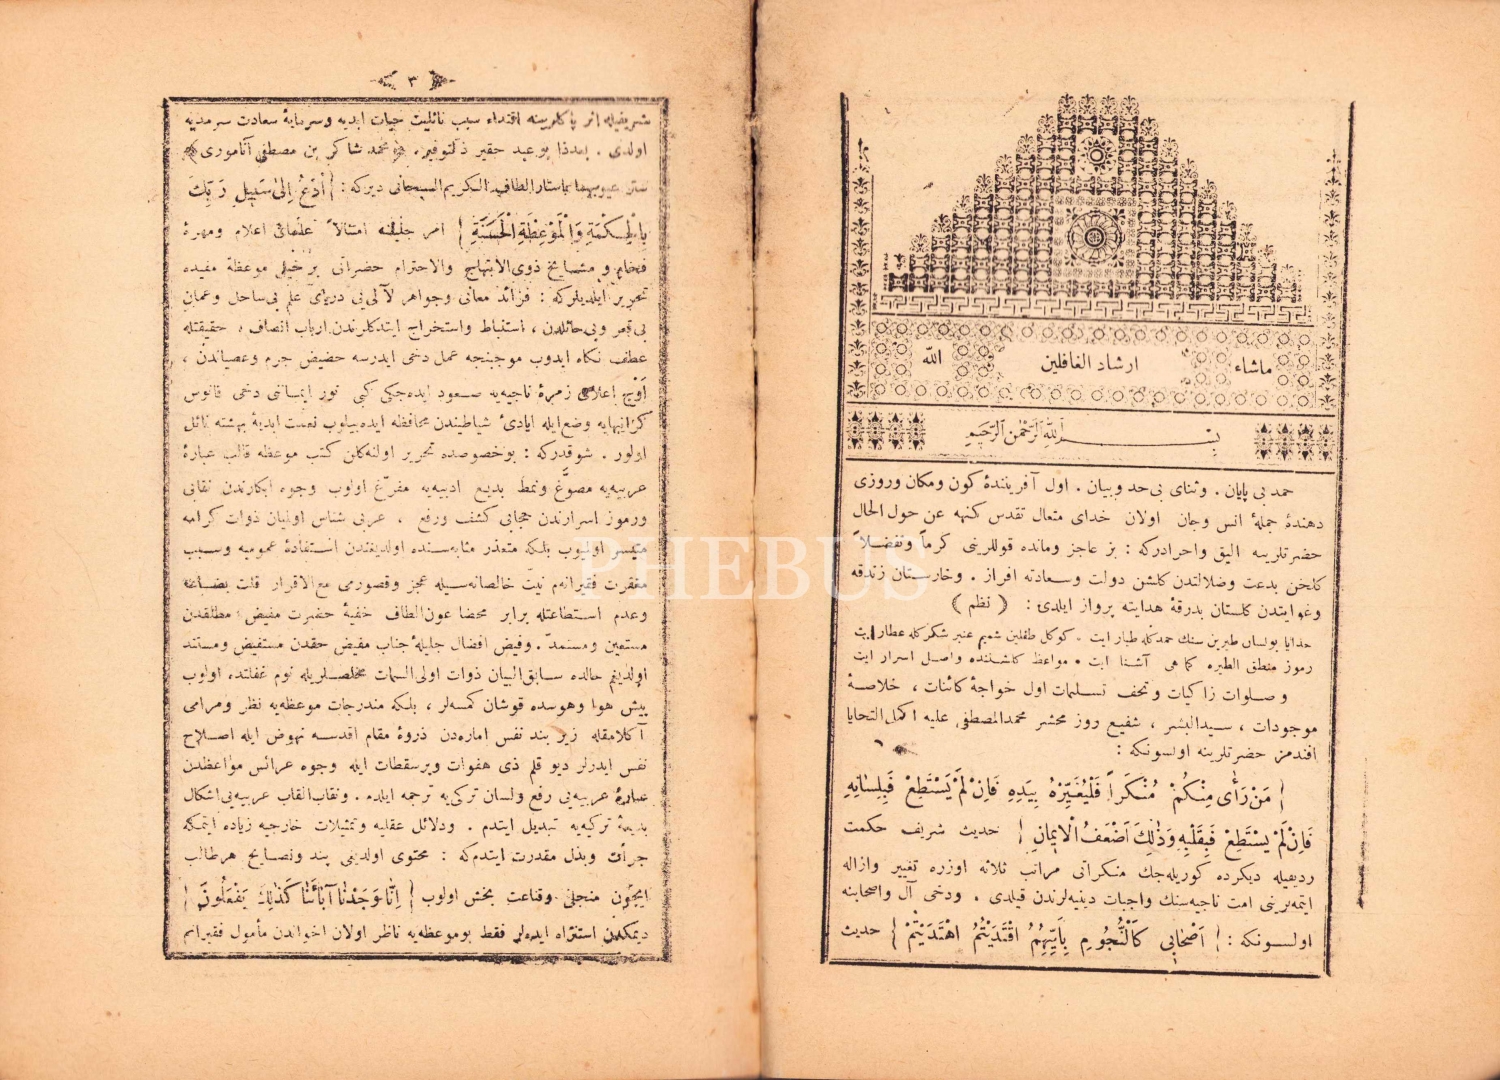 ماشاء ارشاد الغافلين الله
بسم الله الرحمن الرحيم
حمد بی پایان . وثنای بی‌حد وبیان . اول آفرینندهٔ کون ومکان وروزی
دهندهٔ جملهٔ انس وجان اولان خدای متعال تقدس کنهه عن حول الحال
حضرتلرینه الیق واحرادرکه : بز عاجز ومانده قوللرینی کرماً وتفضلاً
کلخن بدعت وضلالتدن کلشن دولت وسعادته افراز . وخارستان زندقه
وغوایتدن کلستان بدرقهٔ هدایته پرواز ایلدی : ( نظم )
خدایا بولسان طیرین سنك حمدکله طیار ایت . کوکل طفلین شمیم عنبر شکرکله عطار ایت
رموز منطق الطیره کماهی آشنا ایت . مواعظ کلشننده واصل اسرار ایت
وصلوات زاکیات وتحف تسلیمات اول خواجهٔ کائنات ، خلاصهٔ
موجودات ، سیدالبشر ، شفیع روز محشر محمدالمصطفی علیه اکمل التحایا
افندمز حضرتلرینه اولسونکه :
{ مَنْ رَأٰى مِنْكُمْ مُنْكَراً فَلْيُغَيِّرْهُ بِيَدِهِ فَاِنْ لَمْ يَسْتَطِعْ فَبِلِسَانِهِ
فَاِنْ لَمْ يَسْتَطِعْ فَبِقَلْبِهِ وَذٰلِكَ اَضْعَفُ الْاِيمَانِ } حدیث شریف حکمت
ردیفیله دیکرده کوریله‌جك منکراتی مراتب ثلاثه اوزره تغییر وازاله
ایتمه‌لرینی امت ناجیه‌سنك واجبات دینیه‌لرندن قیلدی . ودخی آل واصحابنه
اولسونکه : { اَصْحَابِى كَالنُّجُومِ بِاَيِّهِمُ اقْتَدَيْتُمُ اهْتَدَيْتُمْ } حدیث
٣
شریفیله اثر پاکلرینه اقتداء سبب نائلیت حیات ابدیه وسرمایهٔ سعادت سرمدیه
اولدی . بعدذا بو عبد حقیر ذلتوفیر ﴿ محمد شاکر بن مصطفی آناموری ﴾
ستر عیوبهما باستار الطاف الکریم السبحانی دیرکه : { اُدْعُ اِلٰى سَبِيلِ رَبِّكَ
بِالْحِكْمَةِ وَالْمَوْعِظَةِ الْحَسَنَةِ } امر جلیلنه امتثالاً علمای اعلام ومهرهٔ
فخام و مشایخ ذوی‌الابتهاج والاحترام حضراتی برخیلی موعظهٔ مفیده
تحریر ایلدیلرکه : فرائد معانی وجواهر لآلی‌یی دریای علم بی‌ساحل وعمان
بی قعر وبی‌حائلدن ، استنباط واستخراج ایتدکلرندن ارباب انصاف ، حقیقتله
عطف نکاه ایدوب موجبنجه عمل دخی ایدرسه حضیض جرم وعصیاندن ،
اوج اعلای زمرهٔ ناجیه‌یه صعود ایده‌جکی کبی نور ایمانی دخی فانوس
کرانبهایه وضع ایله ایادیٔ شیاطیندن محافظه ایده‌بیلوب نعمت ابدیهٔ بهشته نائل
اولور . شوقدرکه : بوخصوصده تحریر اولنه‌کلن کتب موعظه قالب عبارهٔ
عربیه‌یه مصوغ ونمط بدیع ادبیه‌یه مفرغ اولوب وجوه ابکارندن نقابی
ورموز اسرارندن حجابی کشف ورفع ، عربی شناس اولمیان ذوات کرامه
متیسر اولمیوب بلکه متعذر مثابه‌سنده اولدیغندن استفادهٔ عمومیه وسبب
مغفرت فقیرانه‌م نیت خالصانه‌سیله عجز وقصورمی مع‌الاقرار قلت بضاعه
وعدم استطاعتله برابر محضا عون‌الطاف خفیهٔ حضرت مفیض مطلقدن
مستعین ومستمد . وفیض افضال جلیلهٔ جناب مفیض حقدن مستفیض ومستند
اولدیغم حالده سابق‌البیان ذوات اولی‌السمات مخلصلریله نوم غفلتده اولوب
پیش هوا وهوسده قوشان کمسه‌لر ، بلکه مندرجات موعظه‌یه نظر ومرامی
آکلامقله زیر بند نفس اماره‌دن ذروهٔ مقام اقدسه نهوض ایله اصلاح
نفس ایدرلر دیو قلم ذی هفوات وپرسقطات ایله وجوه عرائس مواعظدن
عبارهٔ عربیه‌یی رفع ولسان ترکی‌یه ترجمه ایلدم . ونقاب‌القاب عربیه‌یی اشکال
بدیعهٔ ترکیه‌یه تبدیل ایتدم . ودلائل عقلیه وتمثیلات خارجیه زیاده ایتمکه
جرأت وبذل مقدرت ایتدم‌که : محتوی اولدیغی پند ونصایح هرطالب
ایچون منجلی وقناعت بخش اولوب { اِنَّا وَجَدْنَا آبَاءَنَا كَذٰلِكَ يَفْعَلُونَ }
دیمکدن استغراه ایده‌لر فقط بوموعظه‌یه ناظر اولان اخواندن مأمول فقیرانم
PHEBUS